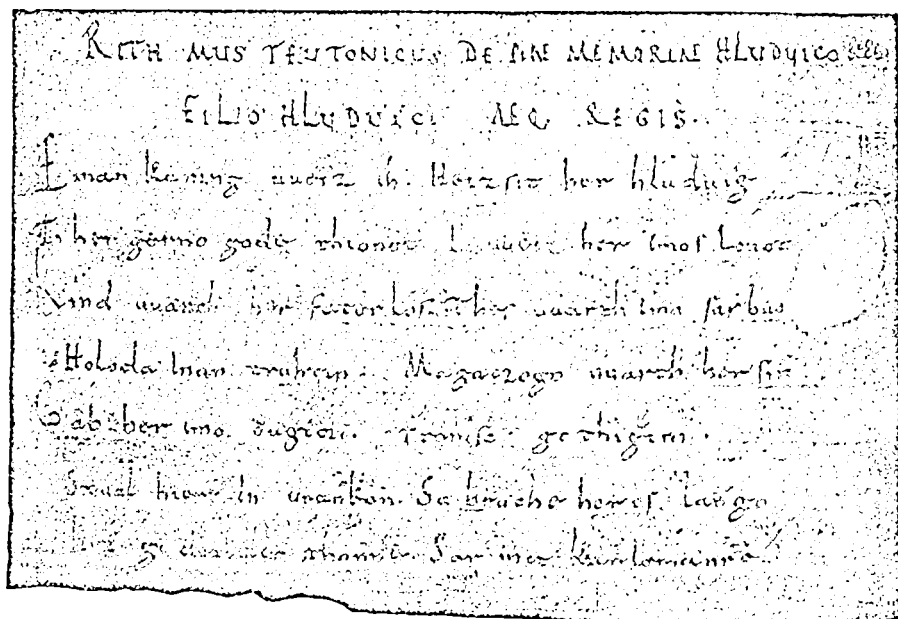 RITHMUS TEUTONICUS DE PIAE MEMORIAE HLUDUICO REGE
FILIO HLUDUICI AEQ REGIS.
Einan kuning uueiz ih. Heizsit her hluduig
Ther gerno gode thionot. Ih uueiz her imos lonot
Kind uuarth her faterlos. Thes uuarth imo sar buoz
Holoda inan truhtin. Magaczogo uuarth her sin
Gab her imo dugidi. Fronisc githigini.
Stual hier in urankon. So bruche her es lango
thanne. Sar mit Karlemanne